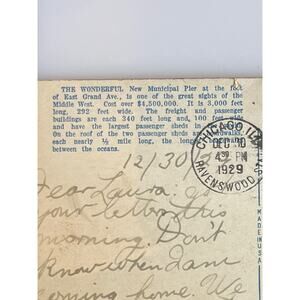 THE WONDERFUL New Municipal Pier at the foot
of East Grand Ave., is one of the great sights of the
Middle West. Cost over $4,500,000. It is 3,000 feet
long, 292 feet wide. The freight and passenger
buildings are each 340 feet long and 100 feet wide
and have the largest passenger sheds in
On the roof of the two passenger sheds are boardwalks,
each nearly ½ mile long, the longest
between the oceans.
CHICAGO ILL
DEC 30
4 30 PM
1929
RAVENSWOOD
MADE IN USA
12/30/
Dear Laura
your letter this
morning. Don't
know when I am
coming home. We